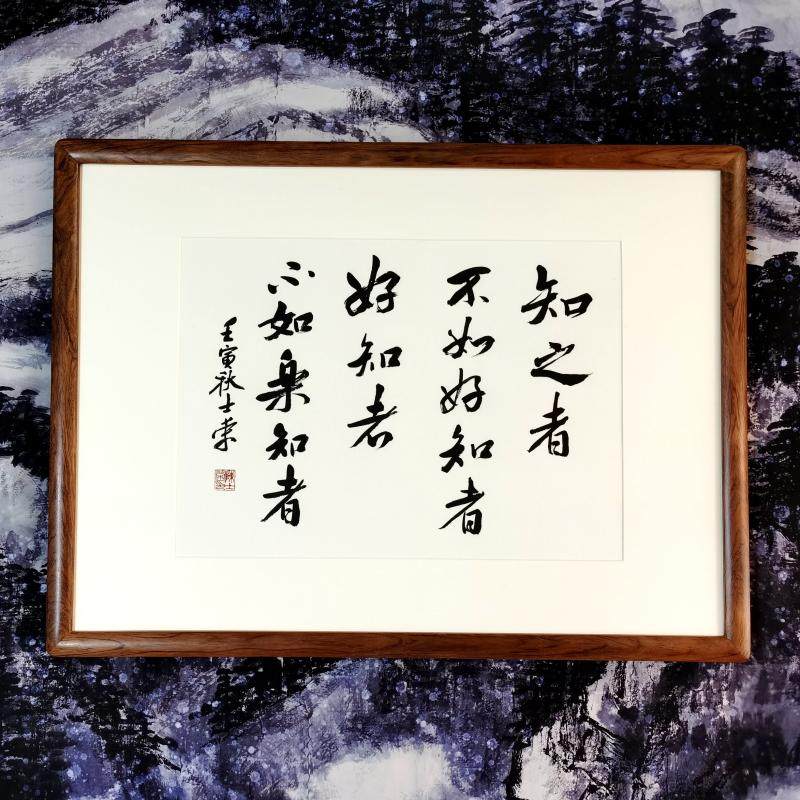 知之者
不如好知者
好知者
不如乐知者
壬寅秋士荣